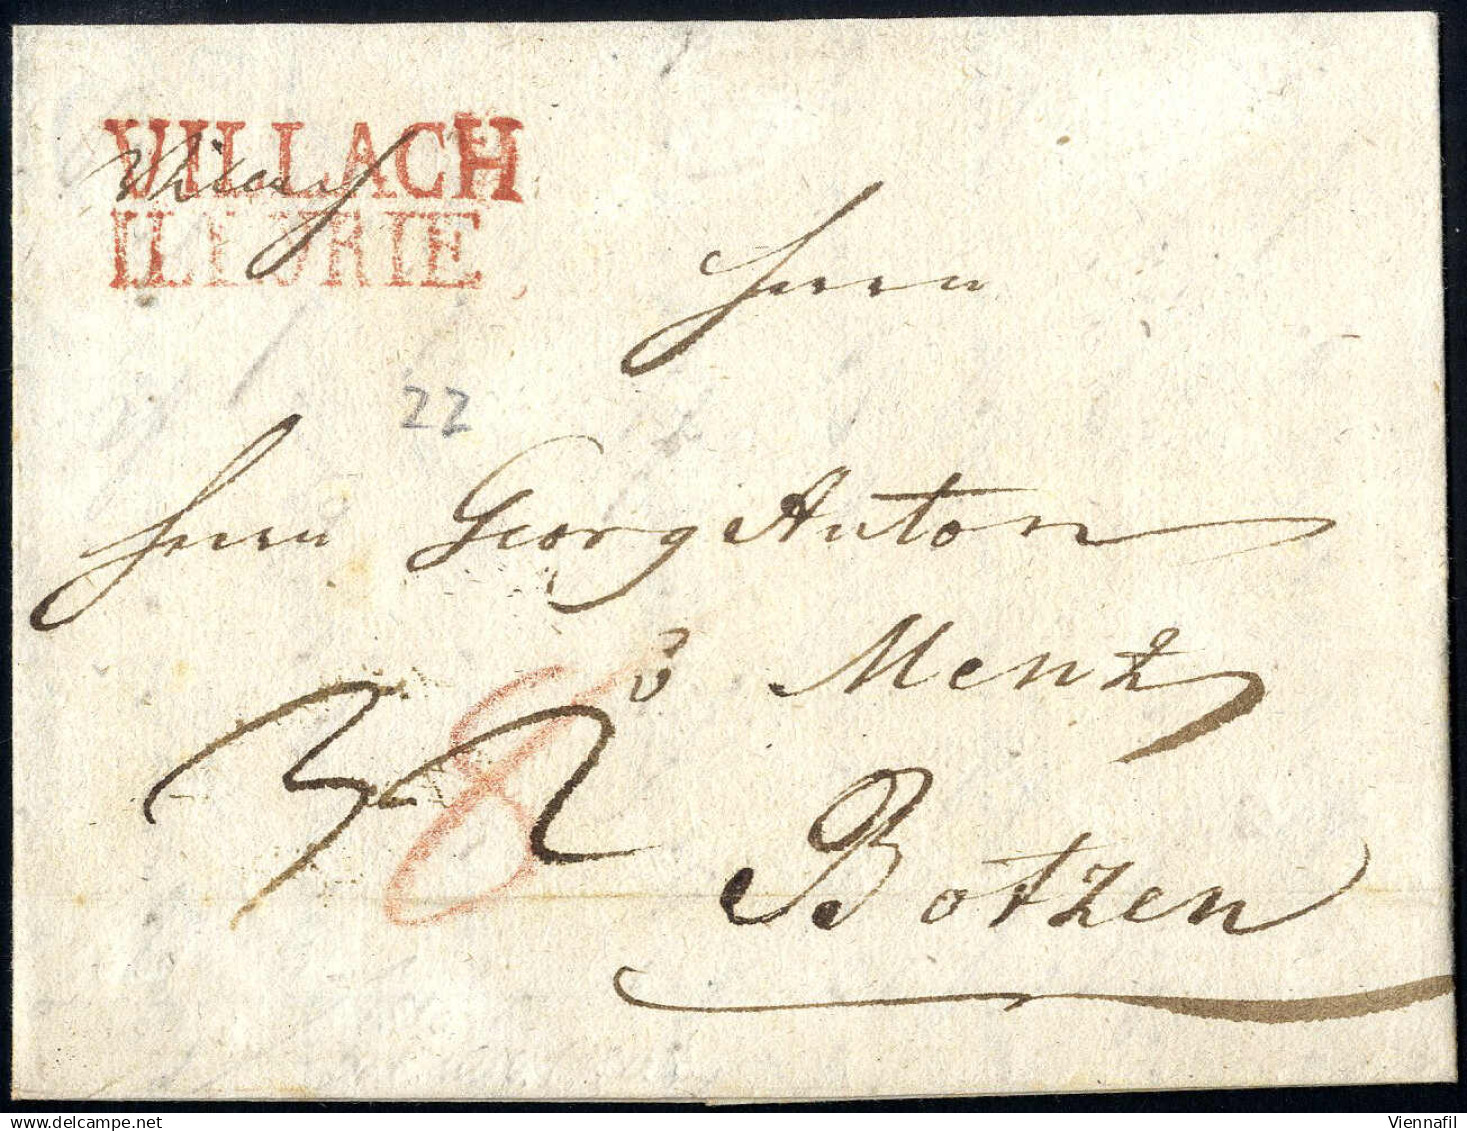 VILLACH
Villach
ILLYRIE
Herrn
22
Herrn Georg Anton
v Menz
32
8
Botzen
Viennafil